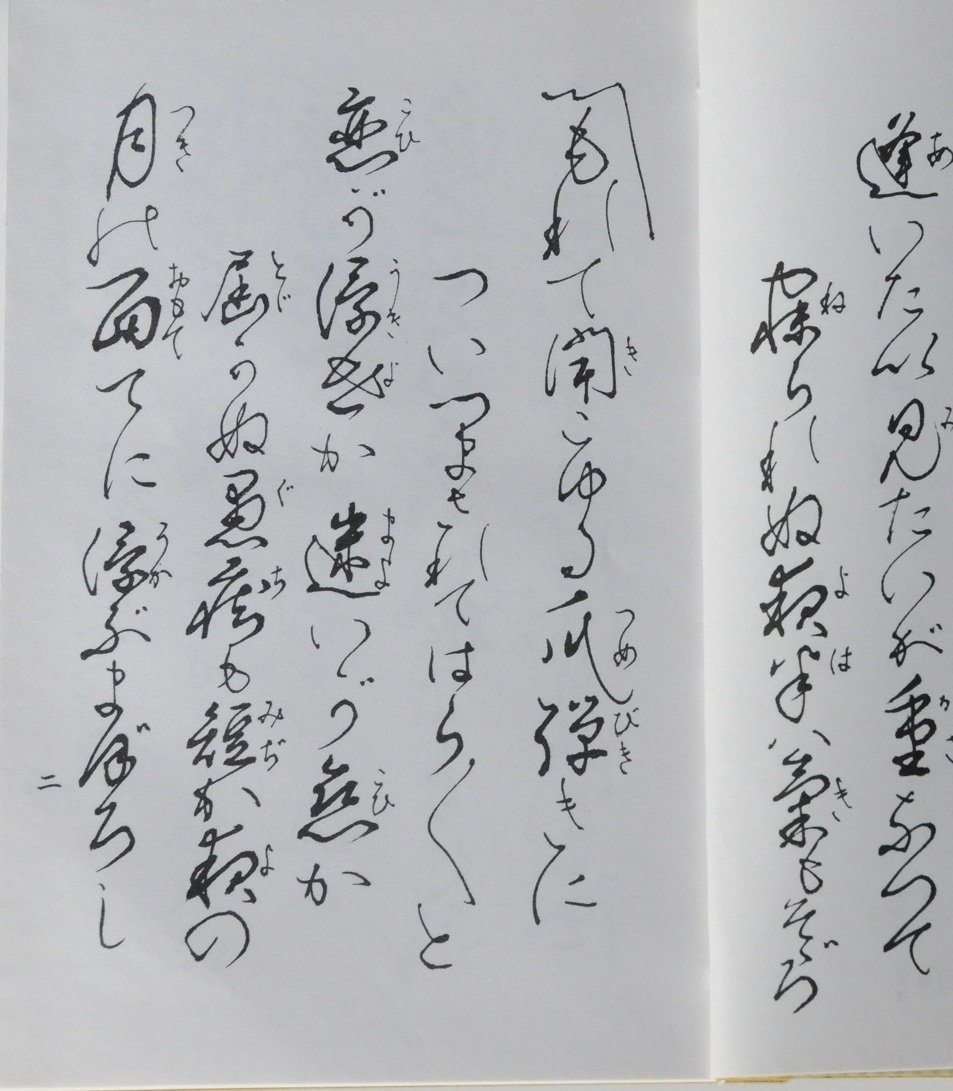 逢いたい見たいが重なつて
寝られぬ夜半は気もそぞろ
〽もれて聞こゆる爪弾きに
ついつまされてはらはらと
恋が浮世か迷いが恋か
届かぬ愚痴も短か夜の
月の面てに浮ぶまぼろし
二